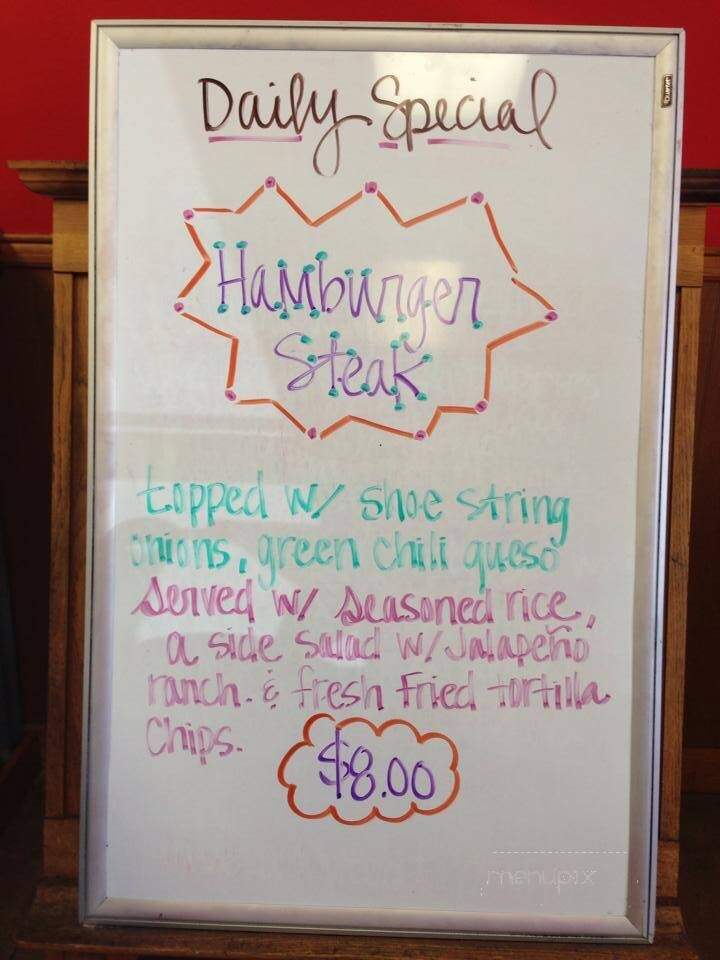 Daily Special
Hamburger
Steak
topped w/ shoe string
onions, green chili queso
Served w/ seasoned rice,
a side salad w/ Jalapeño
ranch. & fresh fried tortilla
Chips.
$8.00
menupix